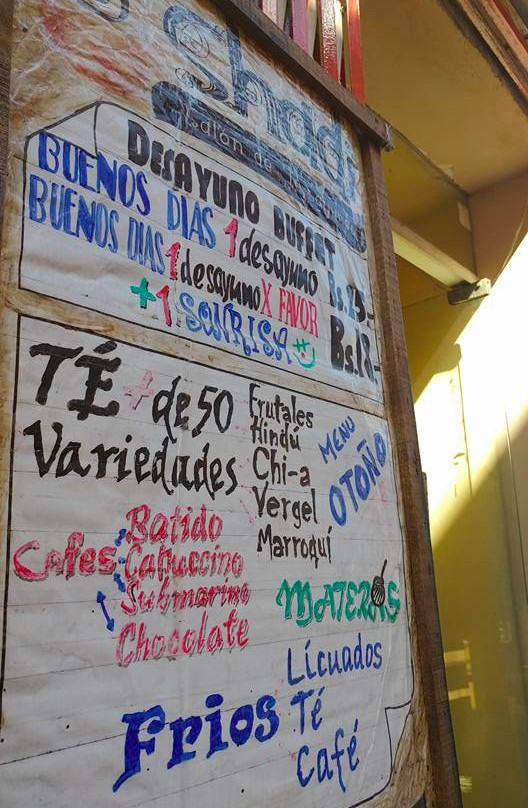 Salón de
DESAYUNO BUFFET
BUENOS DIAS 1 desayuno Bs.23.-
BUENOS DIAS 1 desayuno X FAVOR
+1 SONRISA Bs.18.-
TÉ + de 50
Variedades
Frutales
Hindú
Chi-a
Vergel
Marroquí
MENU
OTOÑO
Cafes
Batido
Capuccino
Submarino
Chocolate
MATEROS
Frios
Licuados
Té
Café